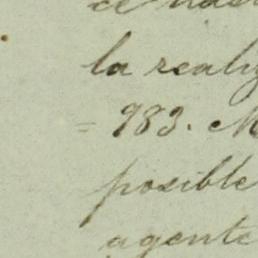 la realiz
= 983. M
posible
agente